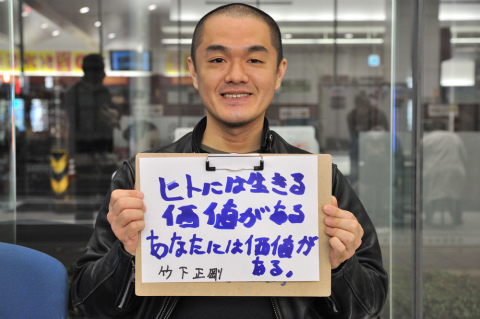 ヒトには生きる
価値がある
あなたには価値が
ある。
竹下正剛